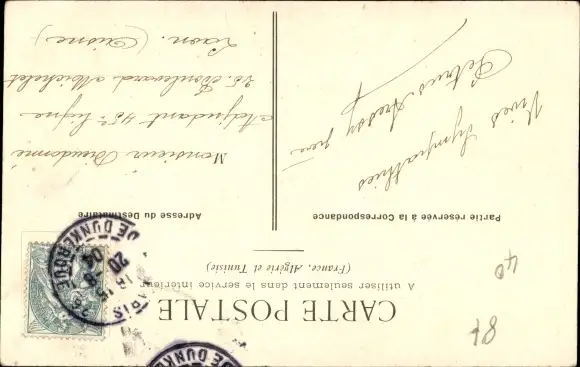 CARTE POSTALE
A utiliser seulement dans le service intérieur
(France, Algérie et Tunisie)
Partie réservée à la Correspondance
Adresse du Destinataire
Vives Sympathies
père
Monsieur
Adjudant 45e ligne
25. Boulevard Michelet
Laon. (Aisne)
PARIS
18 15
20 -8
04
DE DUNKERQUE
DE DUNKE
84
40